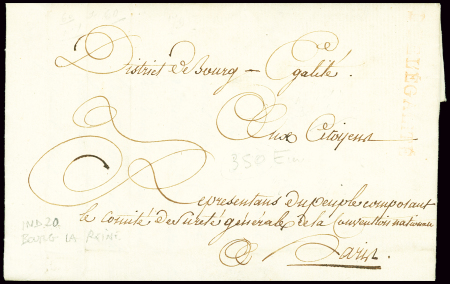 District de Bourg - Egalité.
Aux Citoyens
350 Em
Representans du peuple composant
le Comité de Sureté générale de la Convention nationale
A Paris
IND.20
BOURG LA REINE